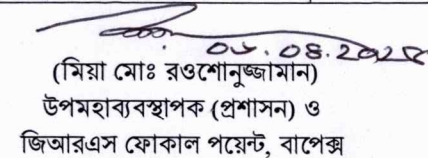 (মিয়া মোঃ রওশোনুজ্জামান)
উপমহাব্যবস্থাপক (প্রশাসন) ও
জিআরএস ফোকাল পয়েন্ট, বাপেক্স